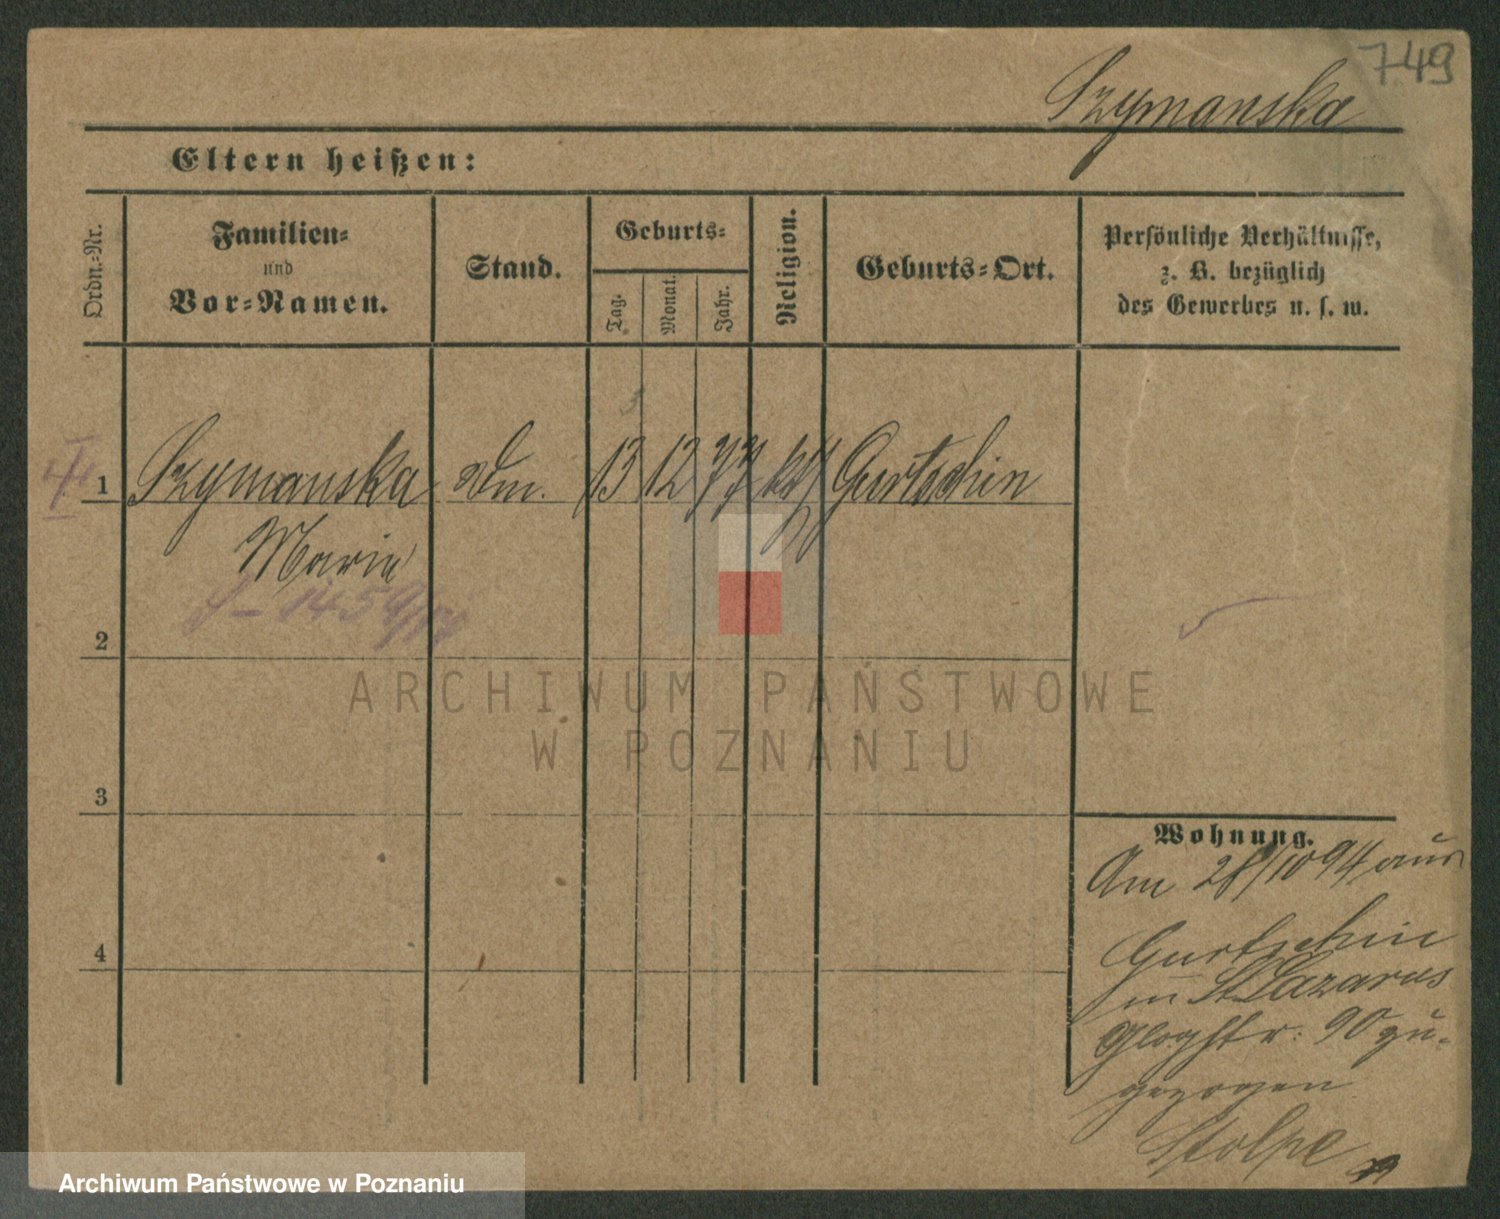 749
Szymanska
Eltern heißen:
Ordn.-Nr.
Familien-
und
Vor-Namen.
Stand.
Geburts-
Tag.
Monat.
Jahr.
Religion.
Geburts-Ort.
Persönliche Verhältnisse,
z. B. bezüglich
des Gewerbes u. s. w.
1 Szymanska 13 12 77 kth Gurtschin
Marie
2
3
4
Wohnung.
Am 28/10 94 aus
Gurtschin
in St Lazarus
Glogstr. 90 zu-
gezogen
Stolpe
ARCHIWUM PAŃSTWOWE
W POZNANIU
Archiwum Państwowe w Poznaniu